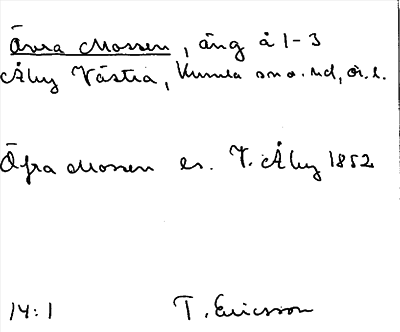 Övra Mossen, äng å 1-3
Åby Västra, Kumla sn o. hd, Ör. l.
Öfra Mossen es. V. Åby 1852
14:1 T. Ericsson